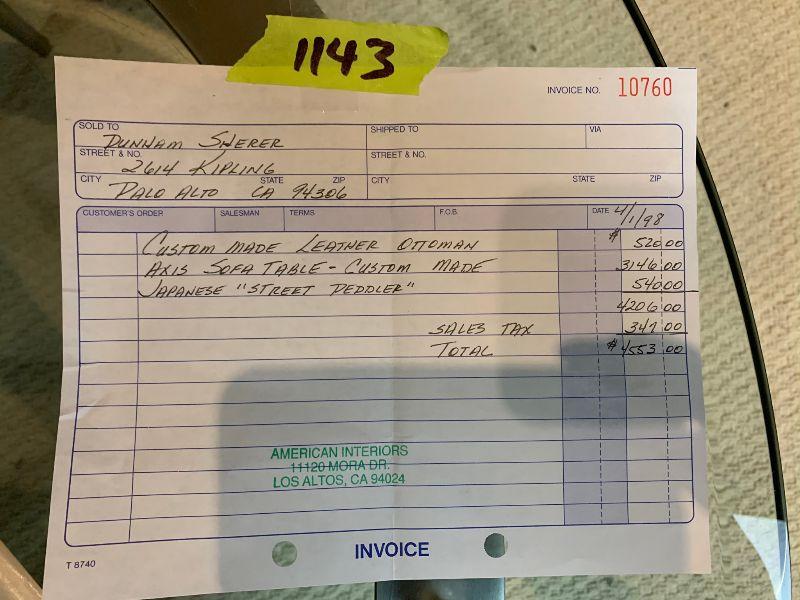 1143
INVOICE NO. 10760
SOLD TO DUNHAM SHERER
SHIPPED TO
VIA
STREET & NO. 2614 KIPLING
STREET & NO.
CITY PALO ALTO STATE CA ZIP 94306
CITY STATE ZIP
CUSTOMER'S ORDER SALESMAN TERMS F.O.B. DATE 4/1/98
CUSTOM MADE LEATHER OTTOMAN $ 520 00
AXIS SOFA TABLE - CUSTOM MADE 3146 00
JAPANESE "STREET PEDDLER" 540 00
4206 00
SALES TAX 347 00
TOTAL $ 4553 00
AMERICAN INTERIORS
11120 MORA DR.
LOS ALTOS, CA 94024
INVOICE
T 8740